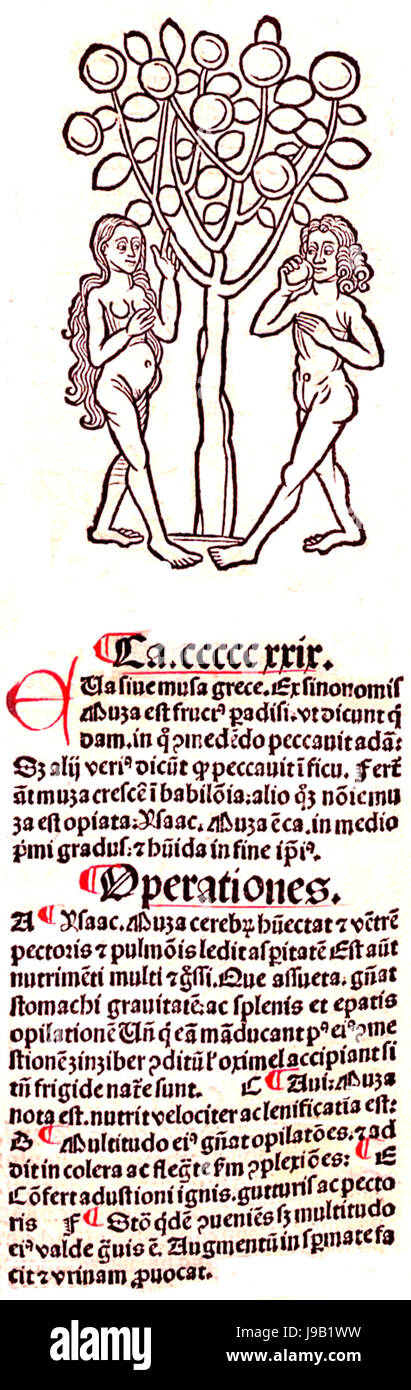 ¶Ca.cccccxxix.
EUa siue musa grece. Ex sinonomis
Muza est fruct⁹ ꝑadisi. vt dicunt q̄
dam. in q̊ ꝯmedēdo peccauit adā:
Sz alij veri⁹ dicūt ꝙ peccauit ī ficu. Fert̄
āt muza crescē ī babilōia: alio qꝫ nōie mu
za est opiata: Ysaac. Muza ē ca. in medio
p̄mi gradus: ⁊ hūida in fine ip̄i⁹.
¶Operationes.
A ¶Ysaac. Muza cerebꝝ hūectat ⁊ vētrē
pectoris ⁊ pulmōis ledit asꝑitatē Est aūt
nutrimēti multi ⁊ g̊ssi. Que assueta. gn̄at
stomachi grauitatē: ac splenis ⁊ epatis
opilationē Uñ q̄ eā māducant p⁹ ei⁹ ꝯme
stionē zinziber ꝯditū ł oximel accipiant si
tn̄ frigide nat̄e sunt. C ¶Aui: Muza
nota est. nutrit velociter ac lenificatīa est:
B ¶Multitudo ei⁹ gn̄at opilatōes. ⁊ ad
dit in colera ac flegt̄e ẜm ꝯplexiōes: ¶E
Cōfert adustioni ignis. gutturis ac pecto
ris F ¶Stō q̇dē ꝯueniēs sz multitudo
ei⁹ valde g̊uis ē. Augmentū in sꝑmate fa
cit ⁊ vrinam ꝓuocat.
alamy
alamy
Image ID: J9B1WW
www.alamy.com